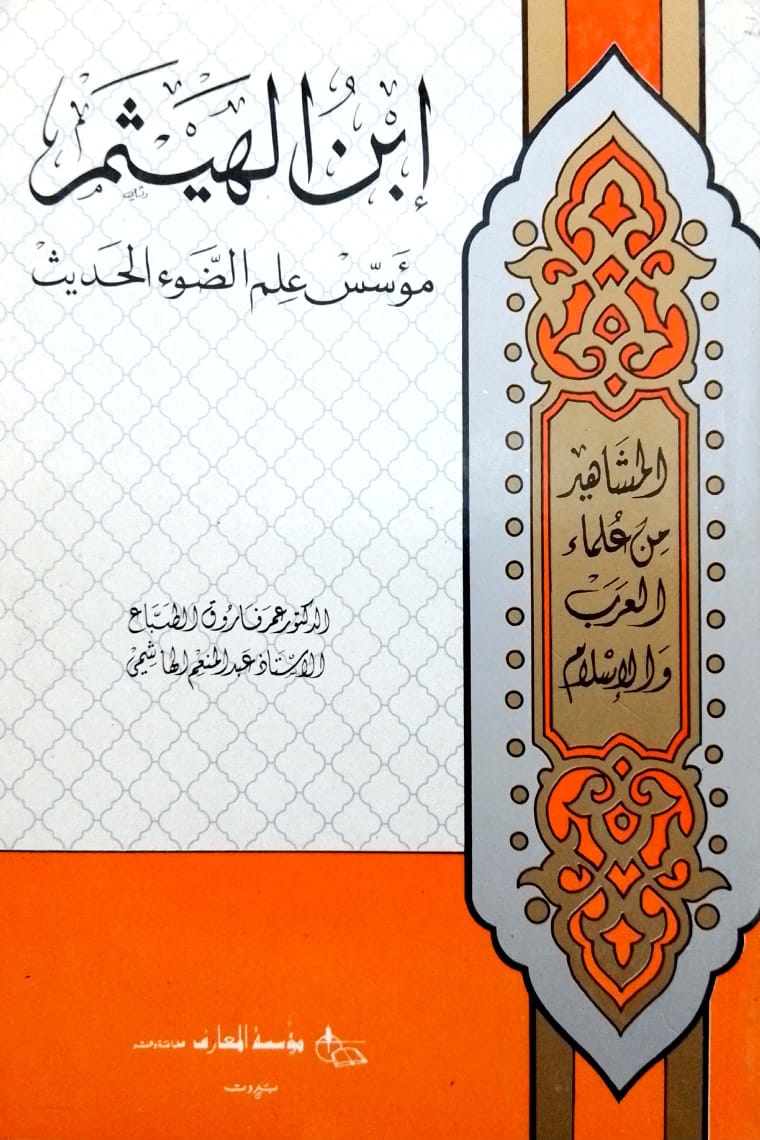 إبْنُ الهَيْثَمْ
مؤَسّسْ عِلم الضَّوء الحَديثْ
المشَاهير
مِن عُلماء
العَربَ
وَالإسْلام
الدكتور عمَر فَاروُق الطبَّاع
الاسْتاذ عَبد المنعِم الهَاشِمي
مؤسسة المعارف
بَيروت